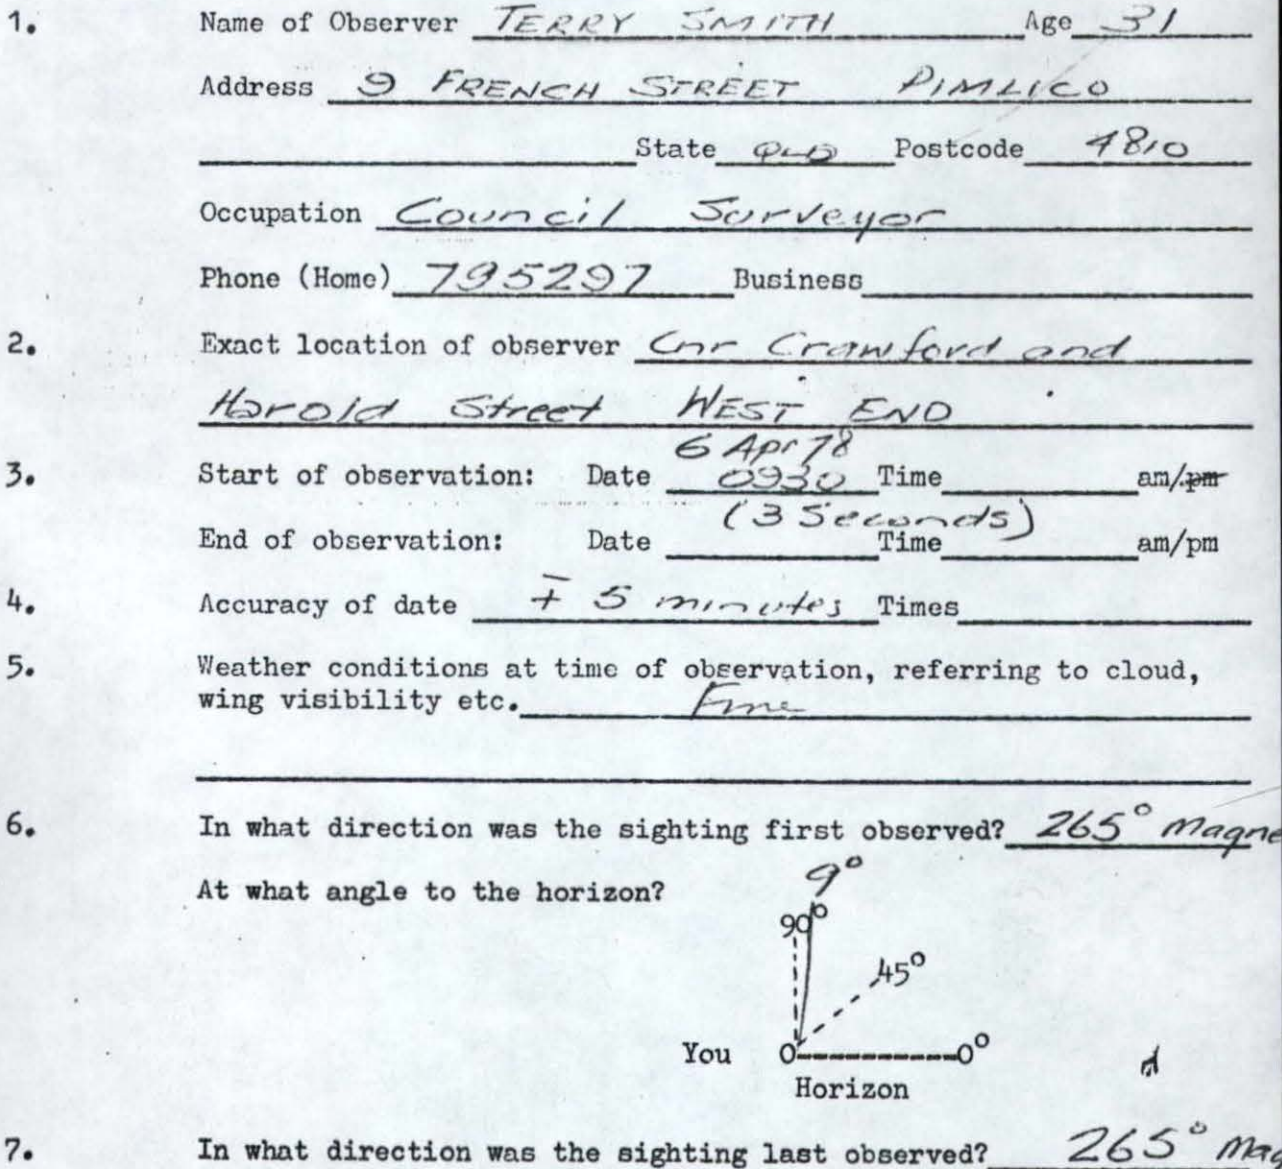 1. Name of Observer TERRY SMITH Age 31
Address 9 FRENCH STREET PIMLICO
State QLD Postcode 4810
Occupation Council Surveyor
Phone (Home) 795297 Business
2. Exact location of observer Cnr Crawford and
Harold Street WEST END
6 Apr 78
3. Start of observation: Date 0930 Time am/pm
(3 Seconds)
End of observation: Date Time am/pm
4. Accuracy of date ∓ 5 minutes Times
5. Weather conditions at time of observation, referring to cloud,
wing visibility etc. Fine
6. In what direction was the sighting first observed? 265° Magne
9°
At what angle to the horizon?
90°
45°
You 0 0°
Horizon
7. In what direction was the sighting last observed? 265° Mag